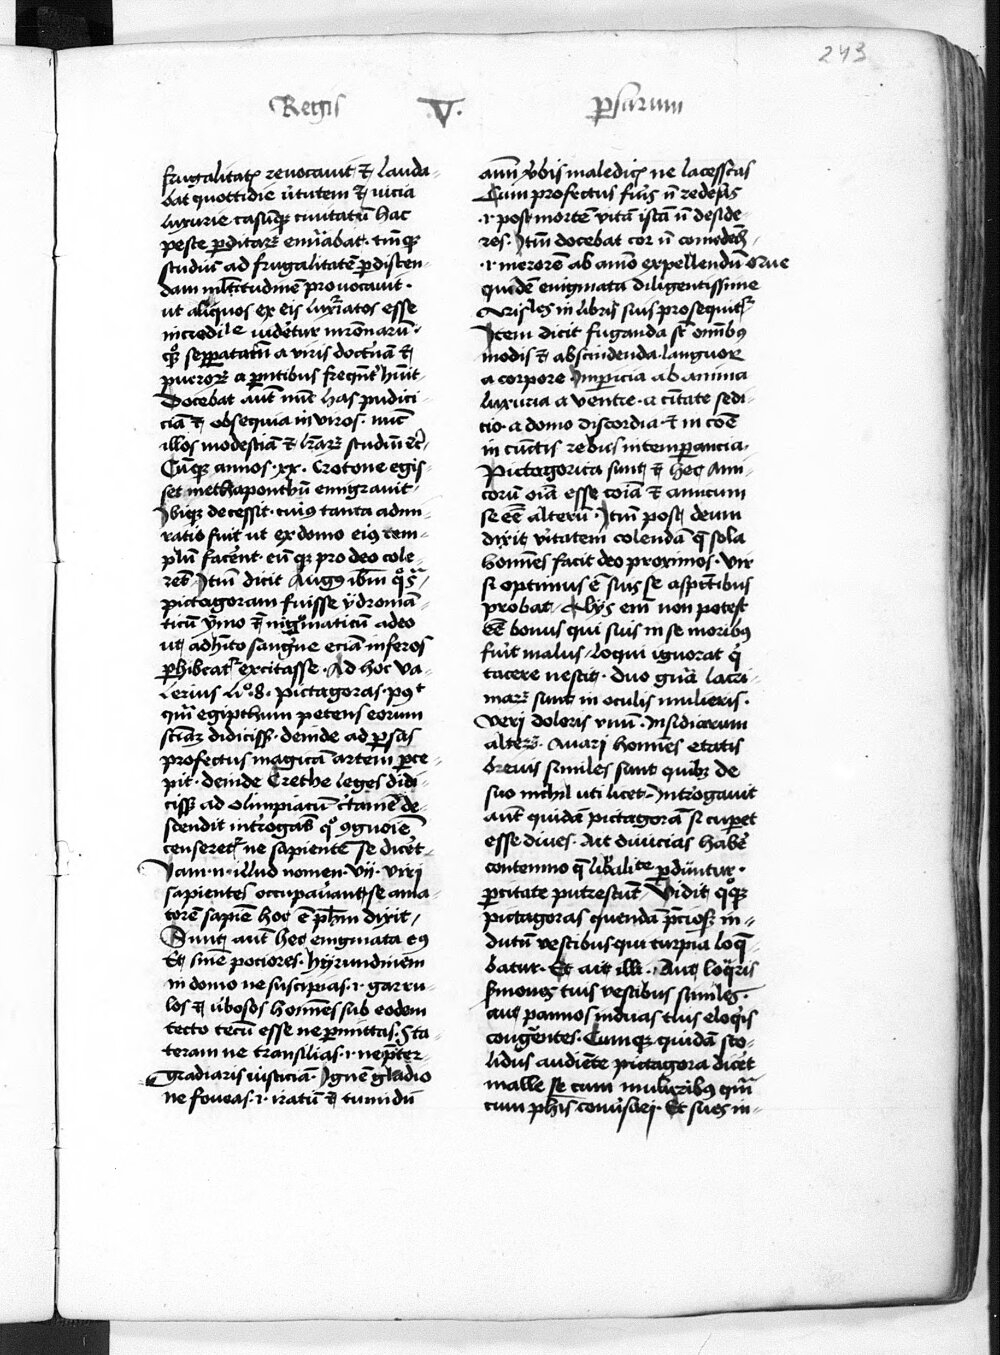 243
Regis V. psarum
frugalitatē revocauit et lauda-
bat quottidie v̄tutem et uicia
luxurie casūque ciuitatū hac
peste perditarꝝ enūabat. tm̄que
studiū ad frugalitatē perdiscen-
dam ml̄titudinē provocauit.
ut aliquos ex eis luxuriatos esse
incredile uidētur mr̄onarū.
qͦque sepparatam a viris doctrinā et
puerorꝝ a parentibus freqūnt̄ hūit.
Docebat autē nūc has pudici-
ciā et obsequia in viros. nūc
illos modestiā et lr̄arꝝ studiū etc̄
Cūque annos .xx. Crotone egis-
set methapontbū emigrauit.
Ibique decessit. cuiꝰ tanta admi-
ratio fuit ut ex domo eiꝰ tem-
plū facerent. eūque pro deo cole-
rēt. Itm̄ dicit Augꝰ ibm̄
pictagoram fuisse ydroman-
ticū ymo et nigromaticū adeo
ut adhito sangᵉne eciā inferos
perhibeatur excitasse. Ad hoc Va-
lerius liº. 8. pictagoras. pꝰt
qm̄ egipthum petens eorum
sciam didiciss. deinde ad persas
profectus magicā artem perce-
pit. deinde Crethe leges didi-
cisset ad olimpiacū c̄tamē de-
scendit int̄rogatꝰ qͦ ꝯgnoīe
censeret̄ ne sapientē se dicēt
Iam .n. illud nomen .vij. viri
sapientes occupauāt se ama-
torē sapiēn hoc ē ph̄m dixit.
Sunt autē hec enigmata eiꝰ
Et sinē pociores. hyrundinem
in domo ne suscipias .i. garru-
los et ūbosos homīes sub eodem
tecto tecū esse ne permittas. Sta-
teram ne transilias .i. ne preter-
gradiaris iusticiā. Ignē gladio
ne foueas .i. iratū et tumidū
aīm v̄bis maledicis ne lacesscas
Cum profectus fuis nō redeas
.i. post mortē vitā istā nō deside-
res. Itm̄ docebat cor nō comedendū
.i. merorē ab aīo expellendū. Que
quidē enigmata diligentissime
Aristles in libris suis prosequitur
Item dicit fuganda sūt om̄ibꝰ
modis et abscindenda. languor
a corpore. Impericia ab anima
luxuria a ventre. a citate sedi-
tio. a domo discordia. et in coē
in cūctis rebus intemperancia.
Pictagorica sunt et hec Ami-
corū oīa esse coīa et amicum
se eē alterū. Itm̄ post deum
dixit v̄itatem colendā que sola
homīes facit deo proximos. Vir
si optimus ē suis se aspectibus
probat. Alijs enī non potest
eē bonus qui suis in se moribꝰ
fuit malus. loqui ignorat qui
tacere nescit. Duo gn̄a lacri-
marꝝ sunt in oculis mulieris.
Veri doloris vnū. Insidiarum
alterꝝ. Auari homīes etatis
breuis similes sunt quibus de
suo nichil uti licet. Int̄rogauit
aut̄ quidā pictagorā si cuperet
esse diues. Ait diuicias habē
contemno que lib̄alitate perduntur.
parcitate putrescunt. Vidit qͦque
pictagoras quendā preciose in-
dutū vestibus qui turpia loque-
batur. Et ait illi. Aut loqueris
sermones tuis vestibus similes.
aut pannos induas tuis eloqiis
congruentes. Cumque quidā sto-
lidus audiēte pictagora dicēt
malle se cum mulieribꝰ quam
cum ph̄is conuersari. Et sues in-